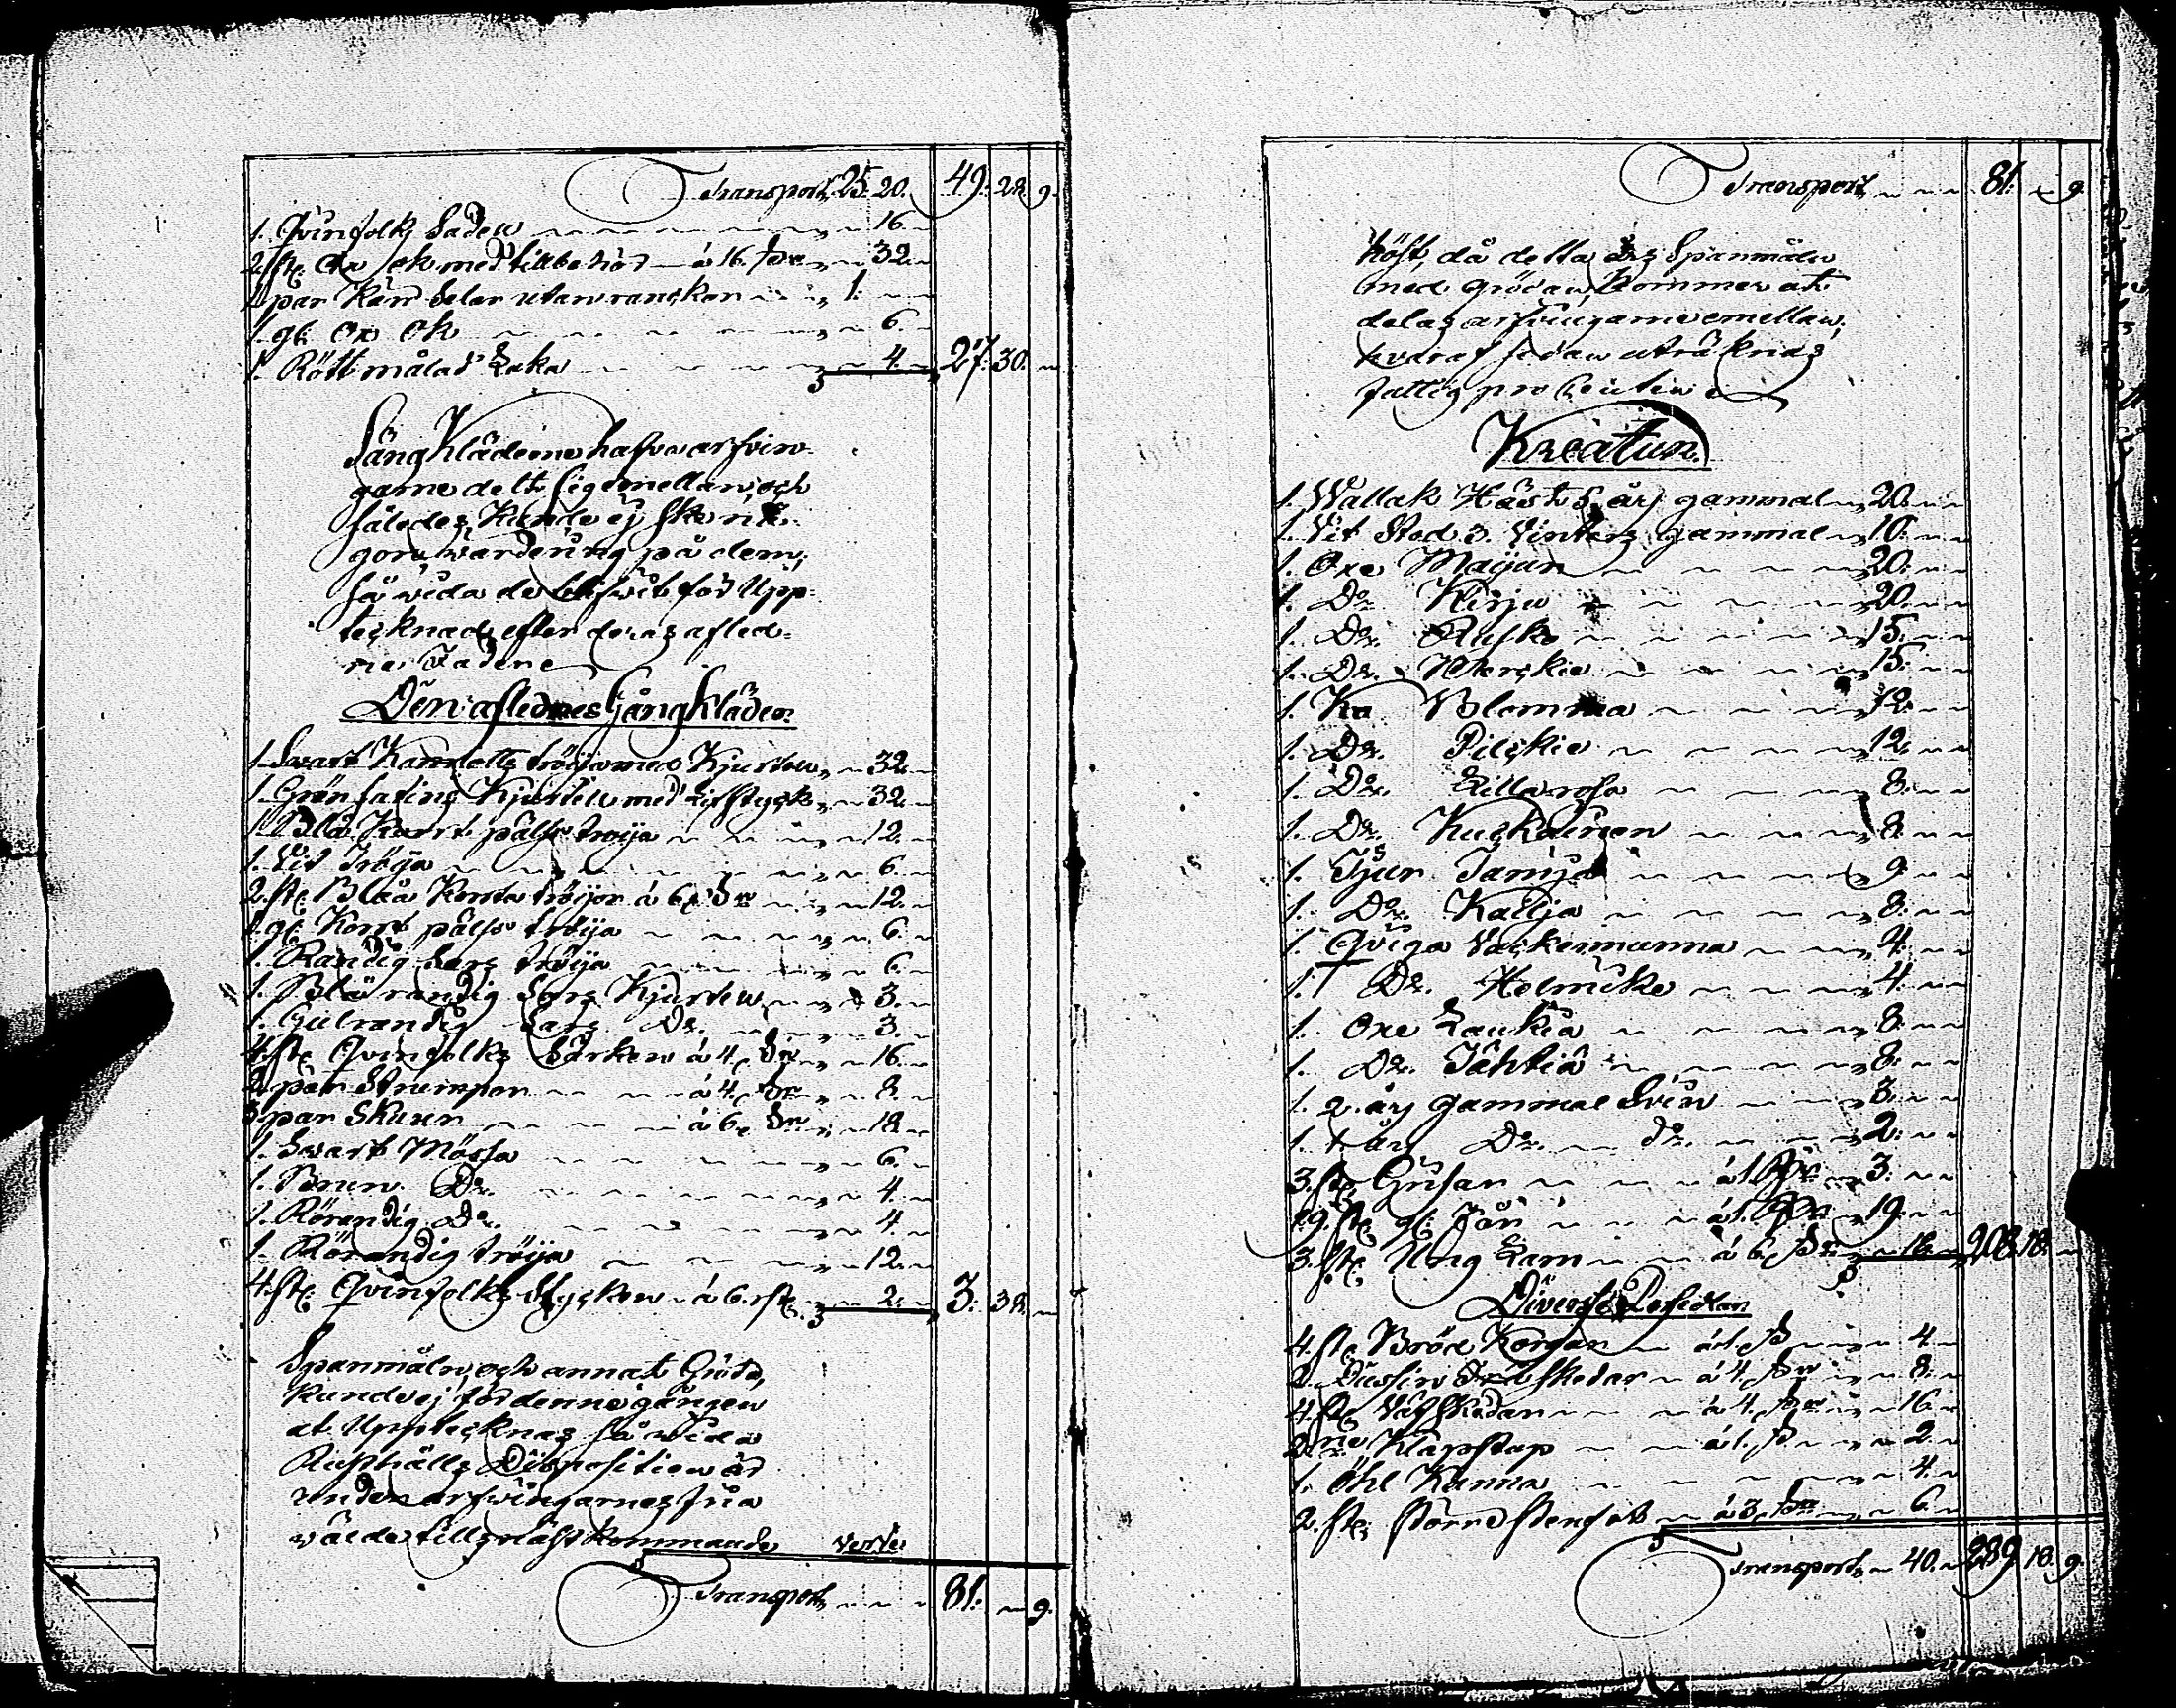 Transport, 25. 20. 49. 28. 9.
1. Qvinfolks Sadell 16.
2. st. Ox ok med tillbehör á 16. 32.
1 par Körn Selar utan ranckor 1.
1. gl. Ox Ok 6.
1. Rött målad Laka 4. 27. 30.
Sängkläderne hafva arfvin-
garne delt sig emellan, och
således kunde ej ske nå-
gon värdering på dem,
så vida de blifvit för Upp-
tecknade efter deras afled-
ne Fader.
Den aflednes Gångkläder.
1. Svart Kamlotts tröija med Kjortel, 32.
1. Grön satins Kjortel med Lifstyck, 32.
1. Blå Kort päls tröija 12.
1. Vit Tröija 6.
2. st. Blåa Korta tröijor á 6 12.
1. gl. Kort päls tröija 6.
1. Randig Sars tröija 6.
1. Blå randig Sars Kjortel 3.
1. Gulrandig Sars Do. 3.
4. st. Qvinfolks Särkar á 4 16.
2. par Strumpor á 4. 8.
3 par Skuor á 6. 18.
1. Svart Mössa 6.
1. Brun Do. 4.
1. Rörandig Do. 4.
1. Rörandig tröija 12.
4. st. Qvinfolks Stycken á 6. st. 2. 3. 38.
Spanmåln, och annat Gods,
kunde ej för denne gången
at Uppteknas, så vida
Rusthålls Disposition är
under arfvingarnes fria
välde tills näst kommande verte
Transport 81. 9.
Transport 81. 9.
höst, då detta års Spanmåln
med grödan kommer at
delas arfvingarne emellan,
hvaraf sedan uträknas
fattig procenten
Kreatur.
1. Wallak Häst 5. års gammal 20.
1. Vit Stod 3. Vinters gammal 10.
1. Oxe Maijun 20.
1. Do. Kirju 20.
1. Do. Rusko 15.
1. Do. Merckie 15.
1. Ko Blomma 12.
1. Do. Pilckie 12.
1. Do. Lillarosa 8.
1. Do. Kuckainen 8.
1. Tjur Tamija 9.
1. Do. Kallja 8.
1. Qviga Vackermumma 4.
1. Do. Holmicke 4.
1. Oxe Laukia 8.
1. Do. Tähtiä 8.
1. 2. års gammal Svin 3.
1. 1. års Do. do. 2.
3. st. Grisar á 1. 3.
19. st. gl. Får á 1. 19.
3. st. Ung Lam á 6. 18. 208. 18.
Diverse Persedlar.
4. st. Bröd Korgar á 1. 4.
2. Dussin Träskedar á 4. 8.
4. st. Väfskedar á 4. 16.
2. ne Kläpstap á 1. 2.
1. Öhl Kanna 4.
2. st. större stenfat á 3. 6.
Transport 40. 289 18. 9.